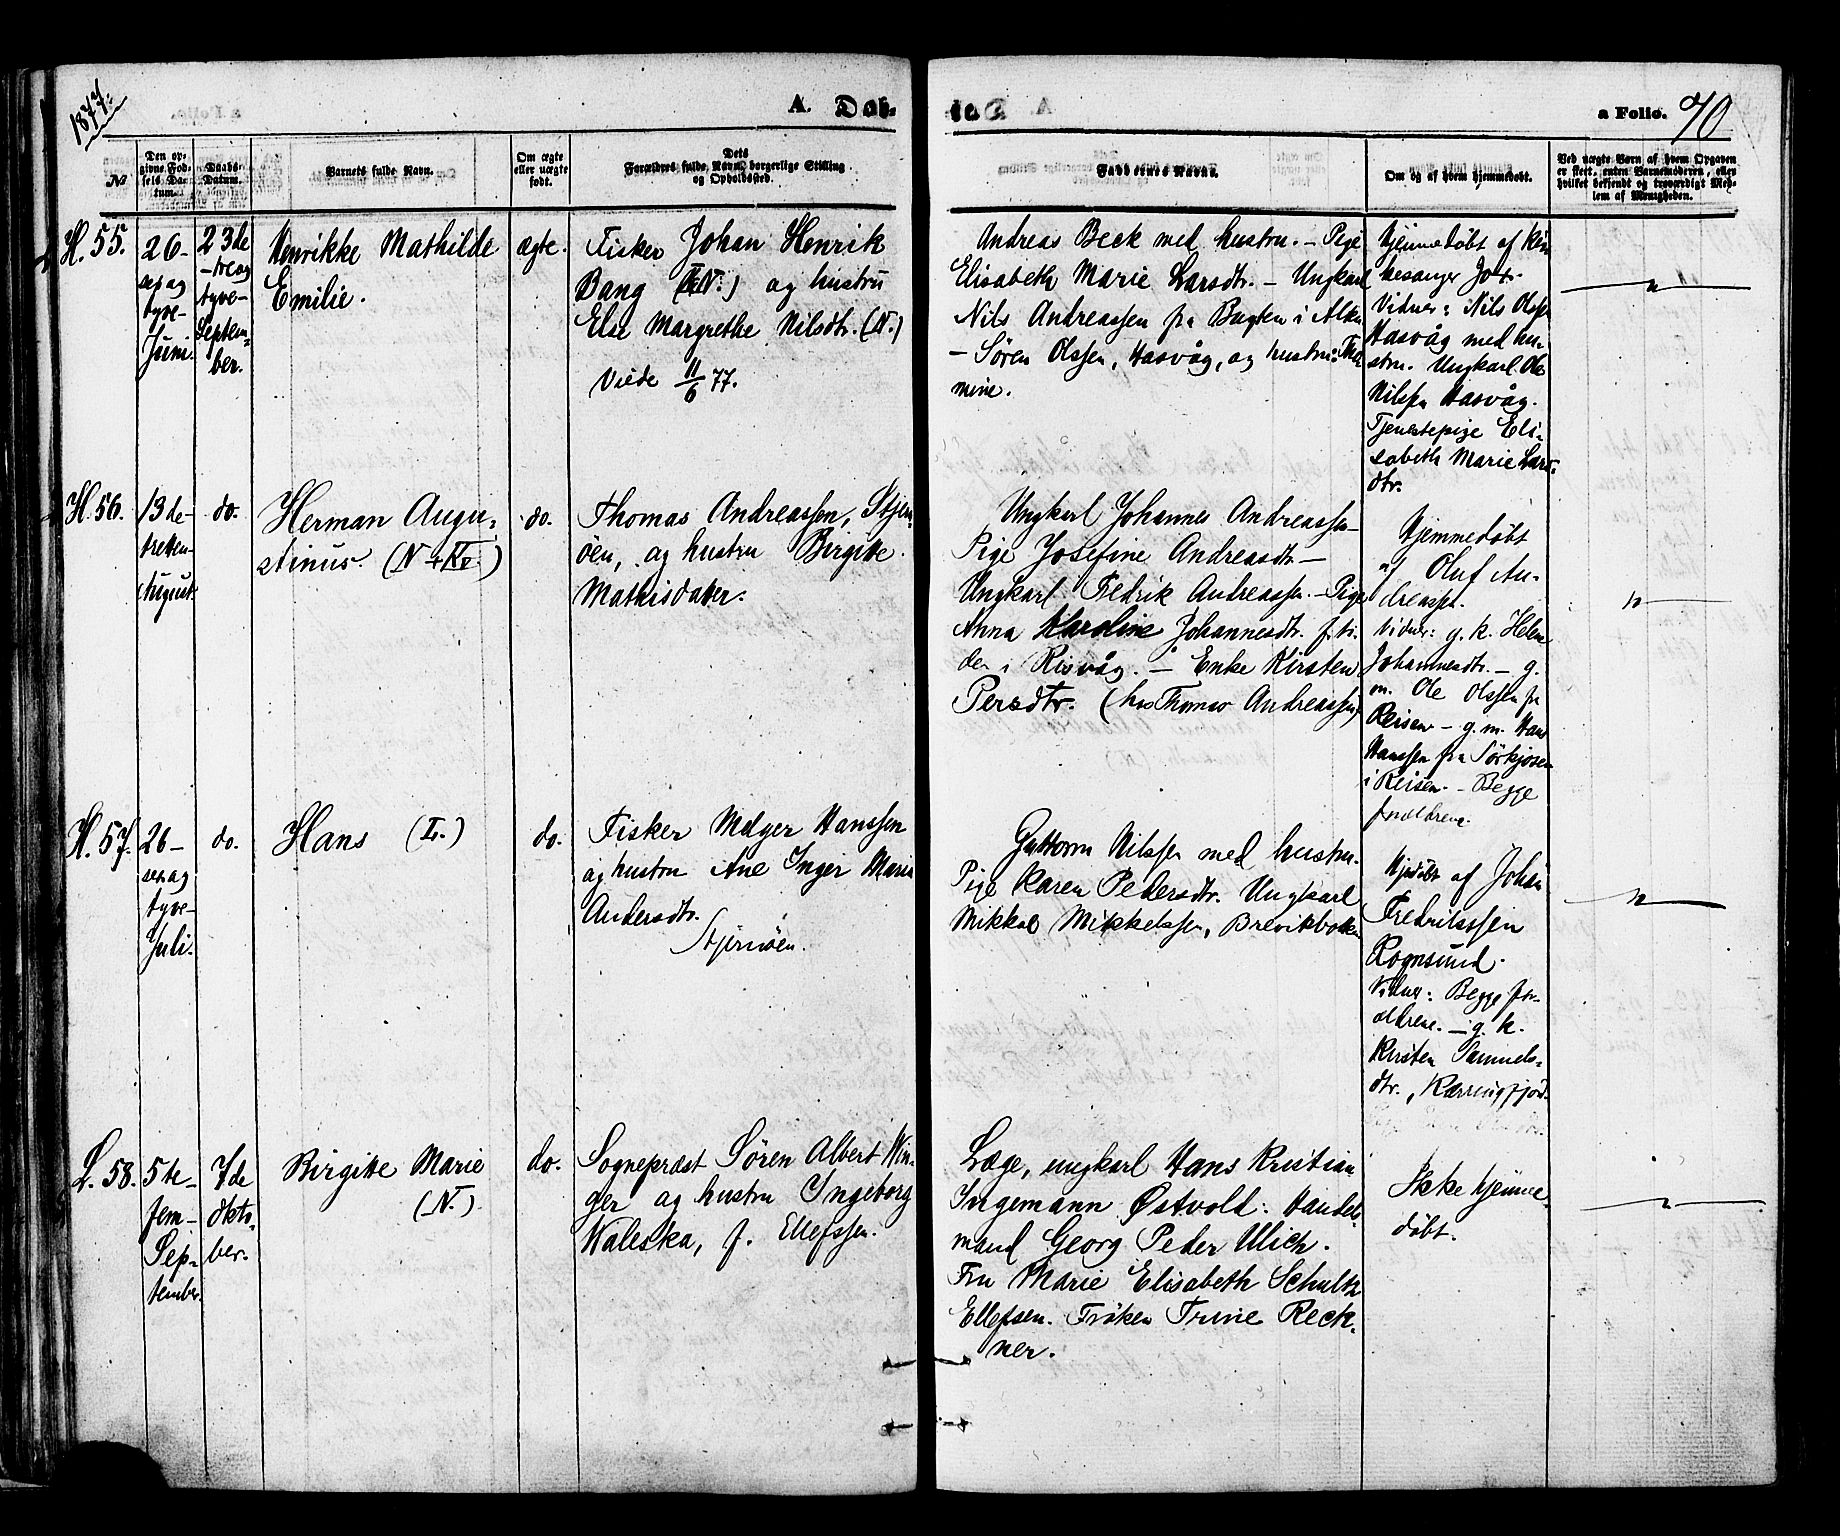 1877.
A. Døb.
a Folio. 70
№
Den op-
givne Fød-
sels Da-
tum.
Daabs-
Datum.
Barnets fulde Navn.
Om ægte
eller uægte
født.
Dets
Forældres fulde Navn, borgerlige Stilling
og Opholdssted.
Faddernes Navne.
Om og af hvem hjemmedøbt.
Ved uægte Børn af hvem Opgaven
er skeet, enten Barnemoderen, eller
hvilket bekjendt og troværdigt Med-
lem af Menigheden.
H. 55.
26-
sex og
tyve-
Juni.
23de
-tre og
tyve-
Septem-
ber.
Henrikke Mathilde
Emilie.
ægte.
Fisker Johan Henrik
Bang og hustru
Else Margrethe Nilsdtr. (N.)
Viede 11/6 77.
Andreas Beck med hustru. - Pige
Elisabeth Marie Larsdtr. - Ungkarl
Nils Andreassen fra Bugten i Alten
- Søren Olssen, Hasvåg, og hustru: Tho-
mine.
Hjemmedøbt af Kir-
kesanger
Vidner: Nils Olssen
Hasvåg med hu-
stru. Ungkarl Ole
Nilssen Hasvåg.
Tjenestepige Eli-
sabeth Marie Lars-
dtr.
H. 56.
13de-
tretten-
August.
do.
Herman Augu-
stinus. (N + Kv.)
do.
Thomas Andreassen, Stjern-
øen, og hustru Birgitte
Mathisdatter.
Ungkarl Johannes Andreassen -
Pige Josefine Andreasdtr. -
Ungkarl Fedrik Andreassen. - Pige
Anna Karoline Johannesdtr. f. ti-
den i Risvåg. - Enke Kirsten
Persdtr. (hos Thomas Andreassen)
Hjemmedøbt
af Oluf An-
dreassen.
Vidner: g. k. Helene
Johannesdtr. - g.
m. Ole Olssen fra
Reisen - g. m. Hans
Hanssen fra Sørkjosen
i Reisen. - Begge
forældrene.
H. 57.
26-
sex og
tyve-
Juli.
do.
Hans (L.)
do.
Fisker Meyer Hanssen
og hustru Ane Inger Marie
Andersdtr.
Stjernøen.
Guttorm Nilssen med hustru.
Pige Karen Pedersdtr. Ungkarl
Mikkal Mikkelssen, Brevikbotten
Hjdøbt af Johan
Fredrikssen
Rognsund.
Vidner: Begge for-
ældrene. - g. k.
Kirsten Samuels-
dtr., Kærringfjord.
L. 58.
5te-
fem-
Sep-
tember.
7de
Okto-
ber.
Birgitte Marie
(N.)
do.
Sogneprest Søren Albert Win-
ger og hustru Ingeborg
Waleska, f. Ellefsen.
Læge, ungkarl Hans Kristian
Ingemann Østvold. Handels-
mand Georg Peder Ulich.
Fru Marie Elisabeth Schultz
Ellefsen. Frøken Trine Reck-
ner.
Ikke hjemme-
døbt.